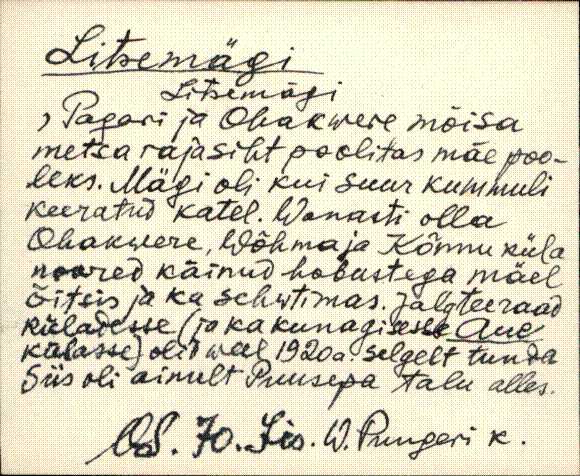 Litsemägi
Litsemägi
, Pagari ja Ohakwere mõisa
metsa rajasiht poolitas mäe poo-
leks. Mägi oli kui suur kummuli
keeratud katel. Wanasti olla
Ohakwere, Wõhma ja Kõnnu küla
noored käinud hobustega mäel
õitsis ja ka schwtimas. Jalgteeraad
küladesse (ja ka kunagisesse Aue
külasse) olid weel 1920a selgelt tunda
Siis oli ainult Puusepa talu alles.
W. Pungeri k.